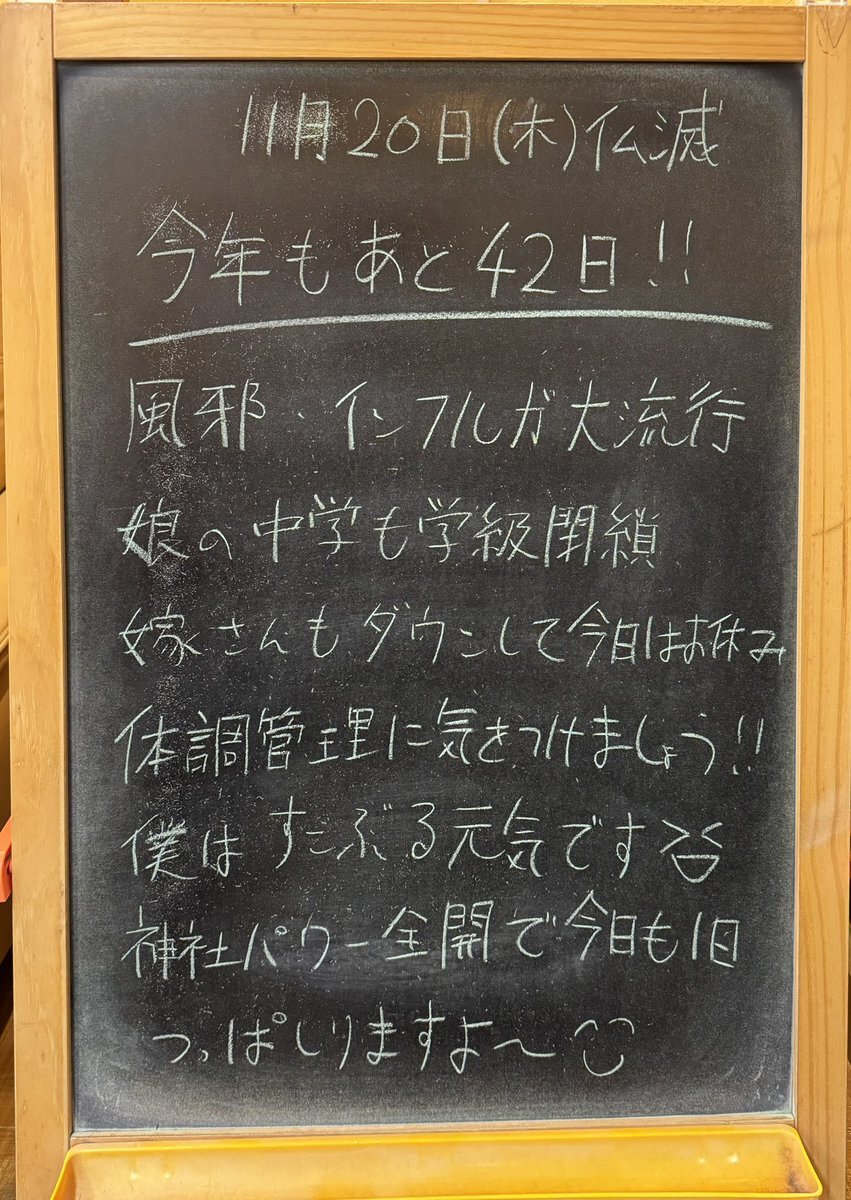 11月20日(木)仏滅
今年もあと42日!!
風邪・インフルガ大流行
娘の中学も学級閉鎖
嫁さんもダウンして今日はお休み
体調管理に気をつけましょう!!
僕はすこぶる元気です
神社パワー全開で今日も1日
つっぱしりますよ〜